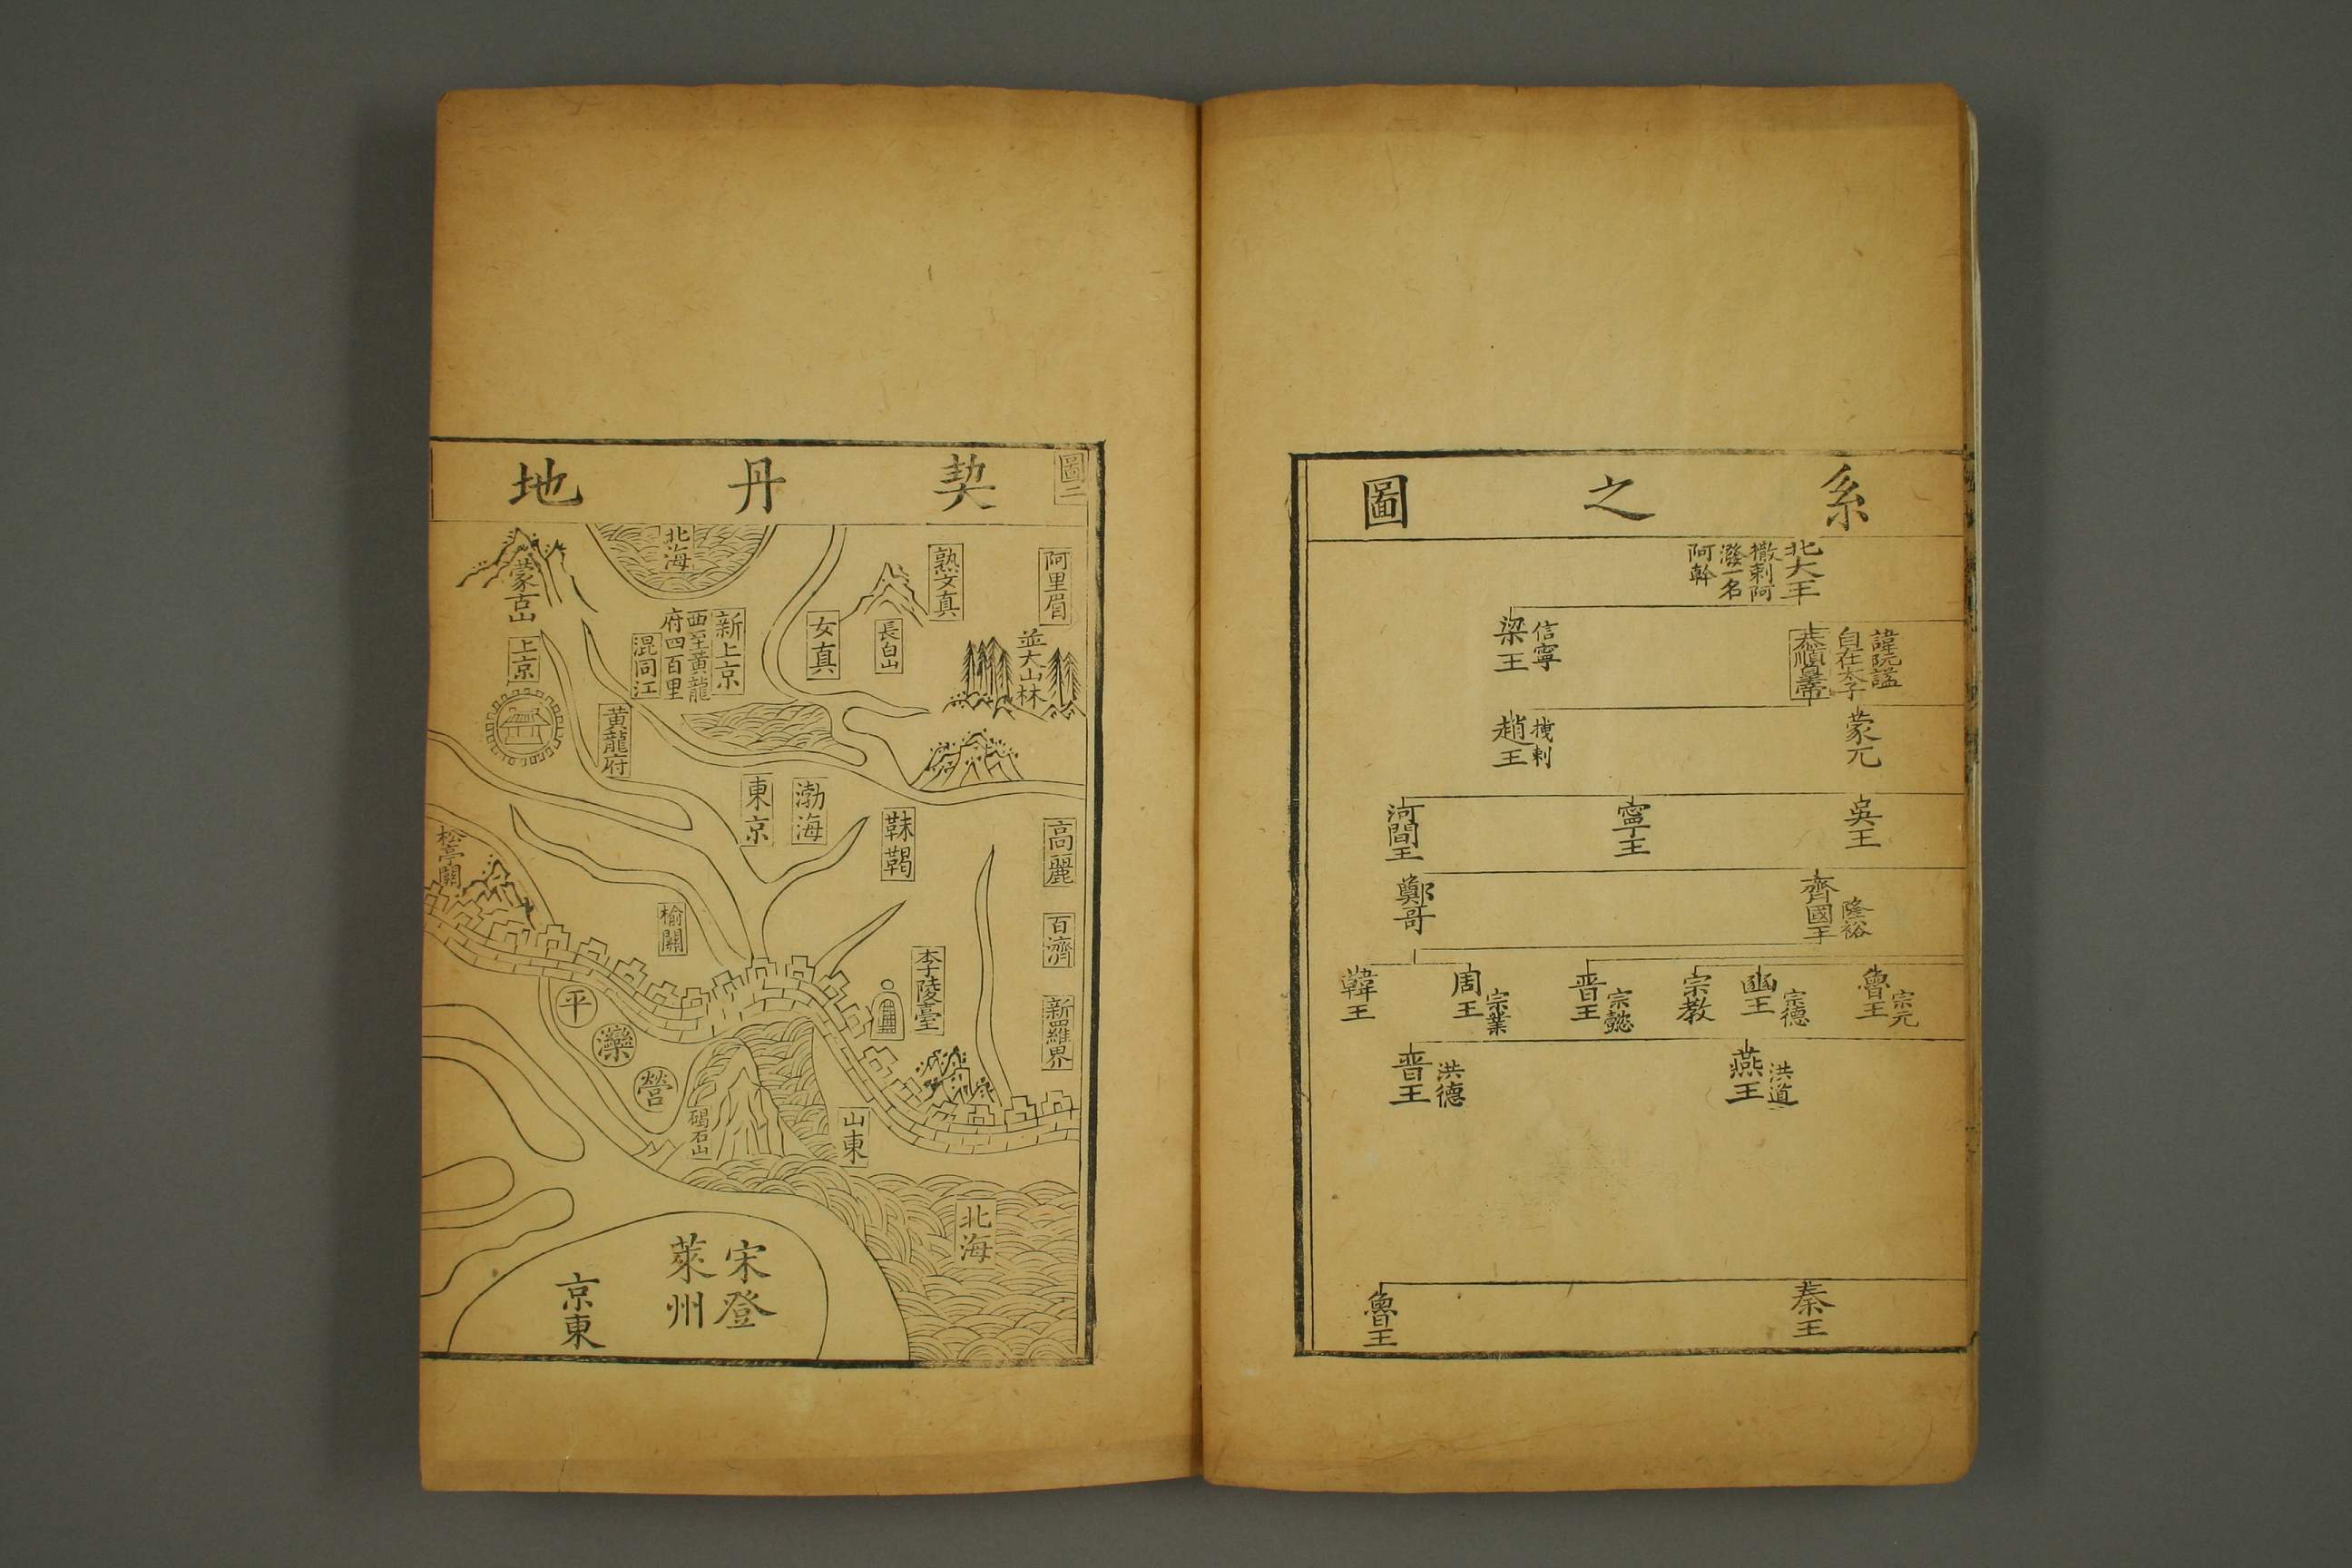 系之圖
北大王
撒剌阿
潑一名
阿幹
諱阮謚
自在太子
恭順皇帝
信寧
梁王
蒙兀
拽剌
趙王
吳王
寧王
河間王
隆裕
齊國王
鄭哥
宗元
魯王
宗德
豳王
宗教
宗懿
晋王
宗業
周王
韓王
洪道
燕王
洪德
晋王
秦王
魯王
圖二
契丹地
阿里眉
熟女真
北海
蒙古山
並大山林
長白山
女真
新上京
西至黃龍
府四百里
混同江
上京
黃龍府
渤海
東京
靺鞨
高麗
松亭關
百濟
榆關
李陵臺
新羅界
平
灤
營
碣石山
山東
北海
宋登
萊州
京東